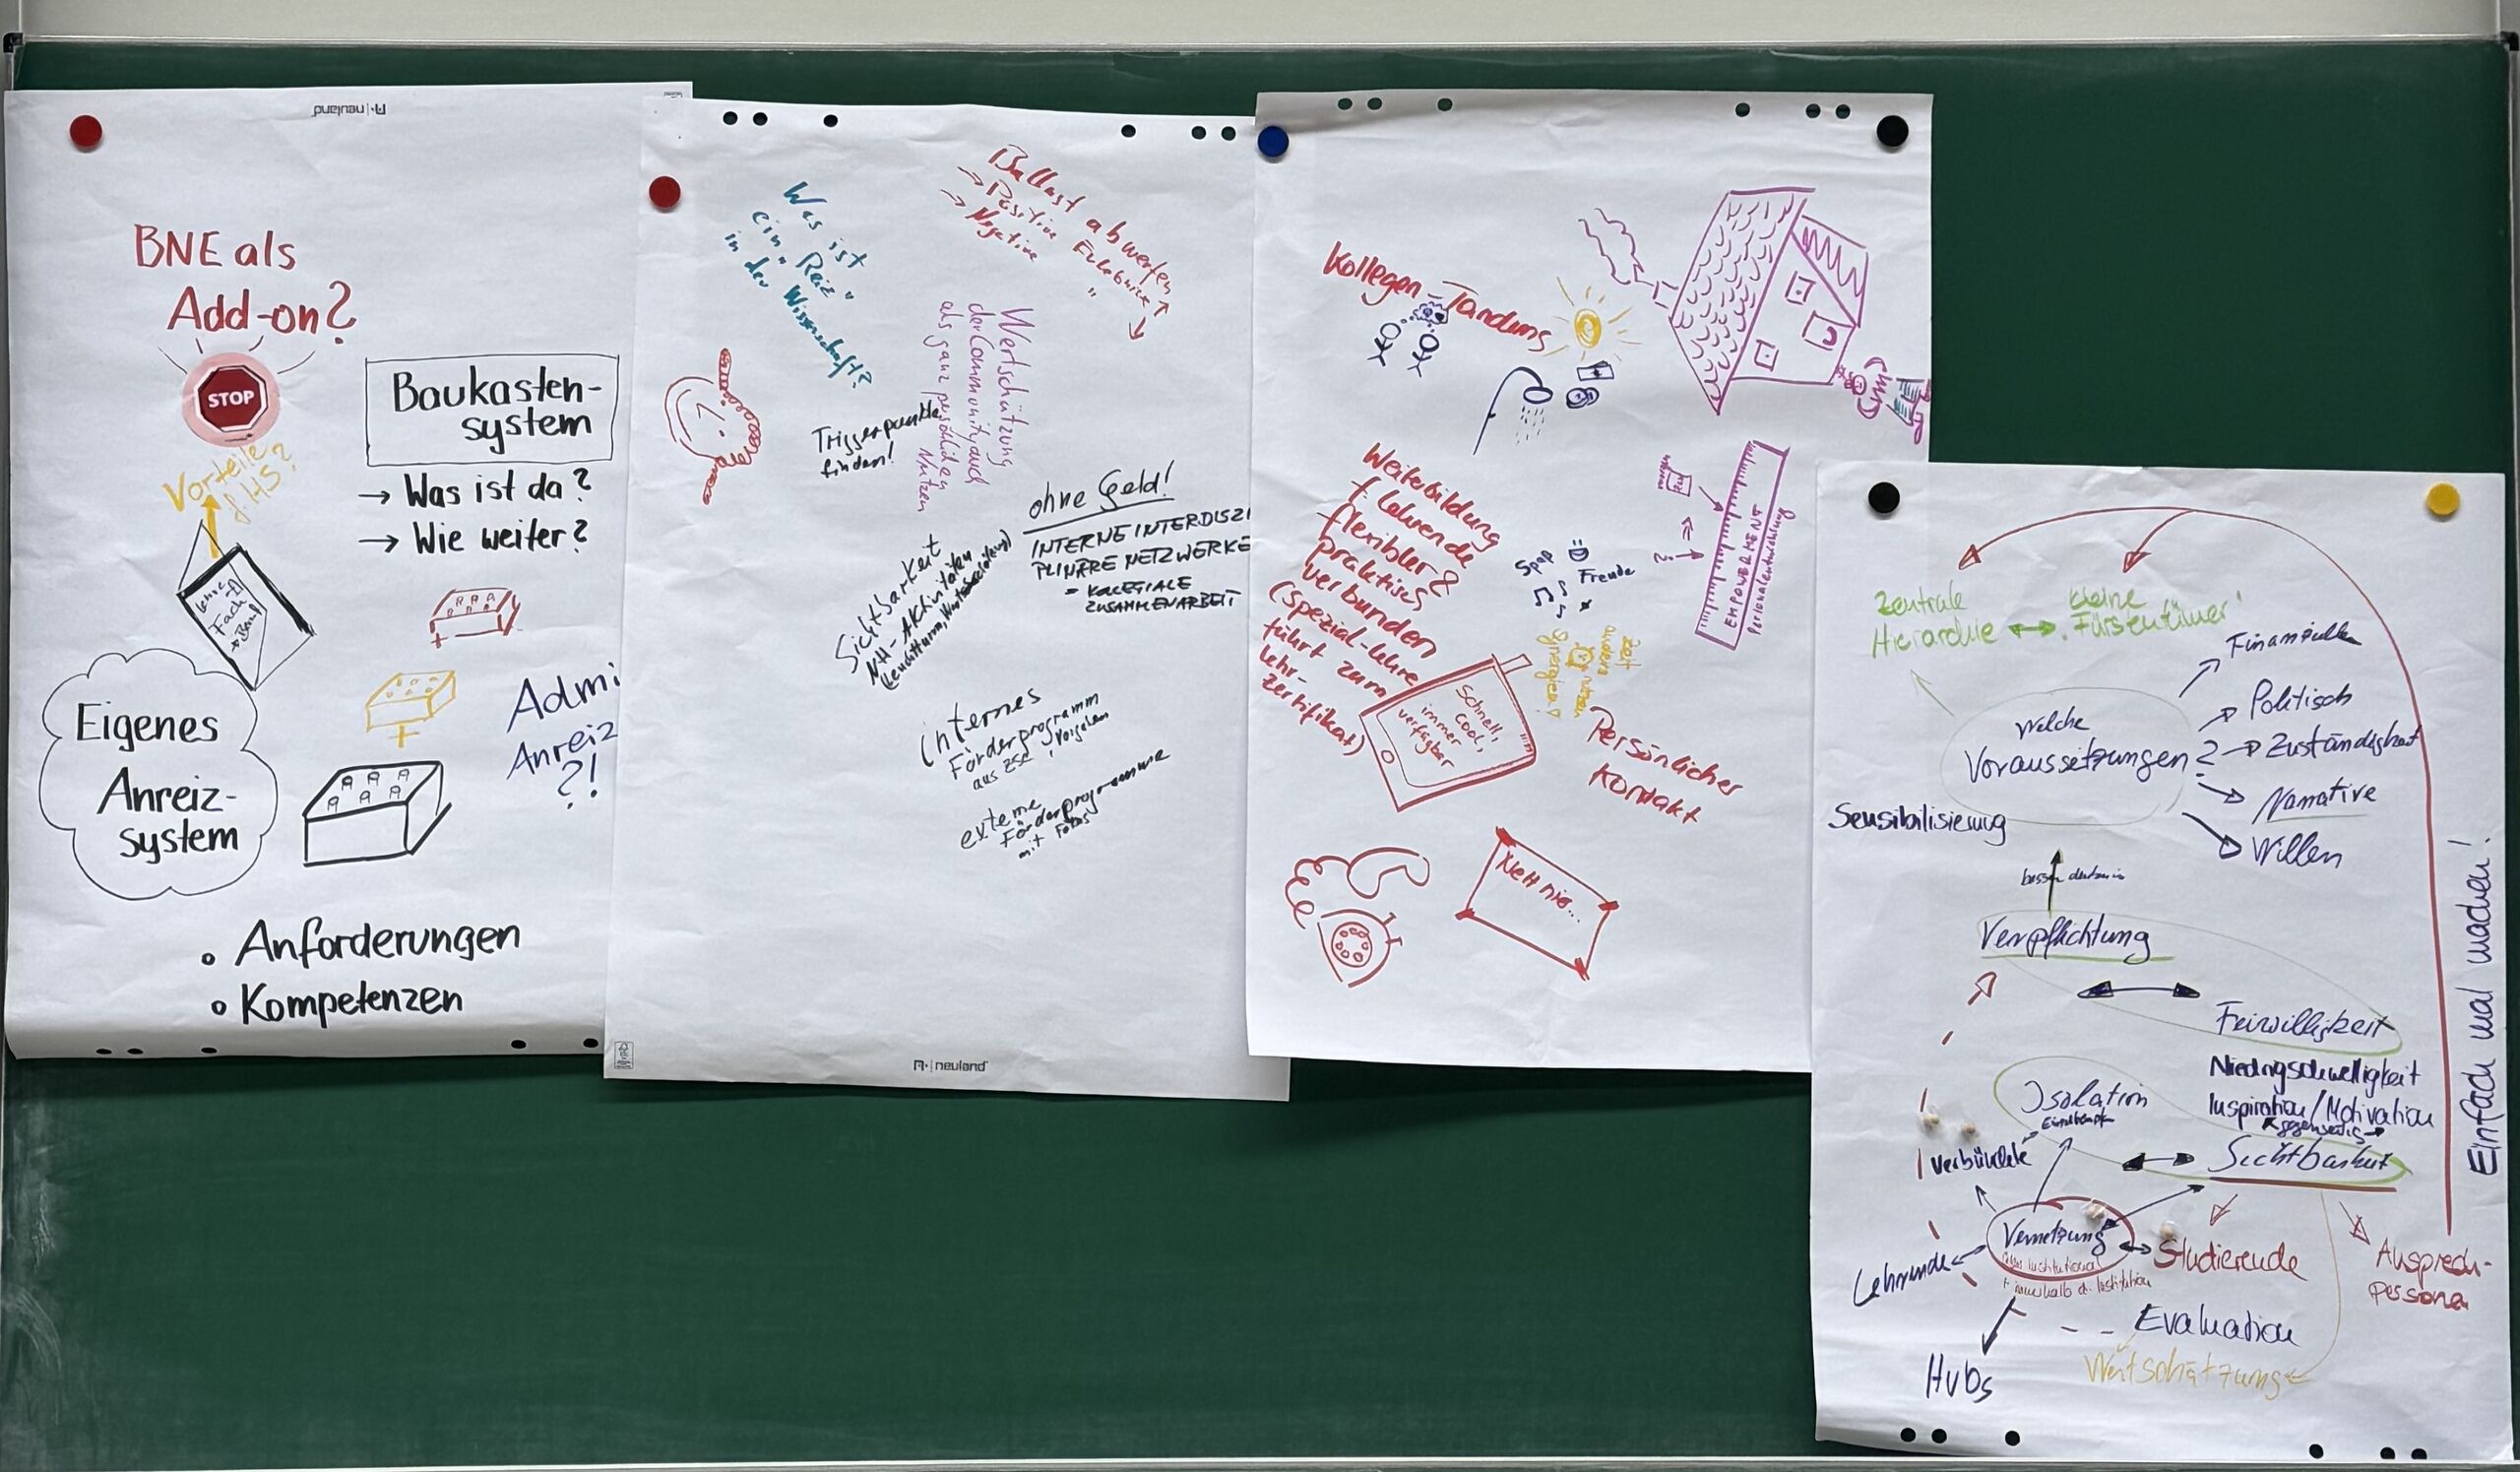 neuland
BNE als
Add-on?
STOP
Vorteile
f. HS?
Baukasten-
system
→ Was ist da?
→ Wie weiter?
Fach
Eigenes
Anreiz-
system
Admi
Anreiz
?!
• Anforderungen
• Kompetenzen
Was ist
ein "Reiz"
in der Wissenschaft?
Ballast abwerfen
→ Positive Erlebnisse ↑
→ Negative " ↓
Wertschätzung
der Community auch
als ganz persönlichen
Nutzen
Triggerpunkte
finden!
ohne Geld!
INTERNE INTERDISZI
PLINÄRE NETZWERKE
= KOLLEGIALE
ZUSAMMENARBEIT
Sichtbarkeit
NH-Aktivitäten
internes
Förderprogramm
aus
externe
Förderprogramme
mit Fokus
neuland
Kollegen-Tandems
Weiterbildung
f. Lehrende
flexibler &
praktisch
verbunden
(Spezial-Lehre
führt zum
Lehr-
zertifikat)
Spaß
Freude
EMPOWERMENT
Personalentwicklung
Zeit
anders
nutzen
Schnell,
cool,
immer
verfügbar
Persönlicher
Kontakt
Nett hier...
Zentrale
Hierarchie ↔
kleine
"Fürstentümer"
Welche
Voraussetzungen?
Finanzielle
Politisch
Zuständigkeit
Narrative
Willen
Sensibilisierung
Verpflichtung
Freiwilligkeit
Niedrigschwelligkeit
Inspiration/Motivation
gegenseitig
Isolation
Einzelkämpfer
Verbündete
Sichtbarkeit
Vernetzung
+ innerhalb d. Institution
Lehrende
Studierende
Ansprech-
personen
Hubs
Evaluation
Wertschätzung
Einfach mal machen!